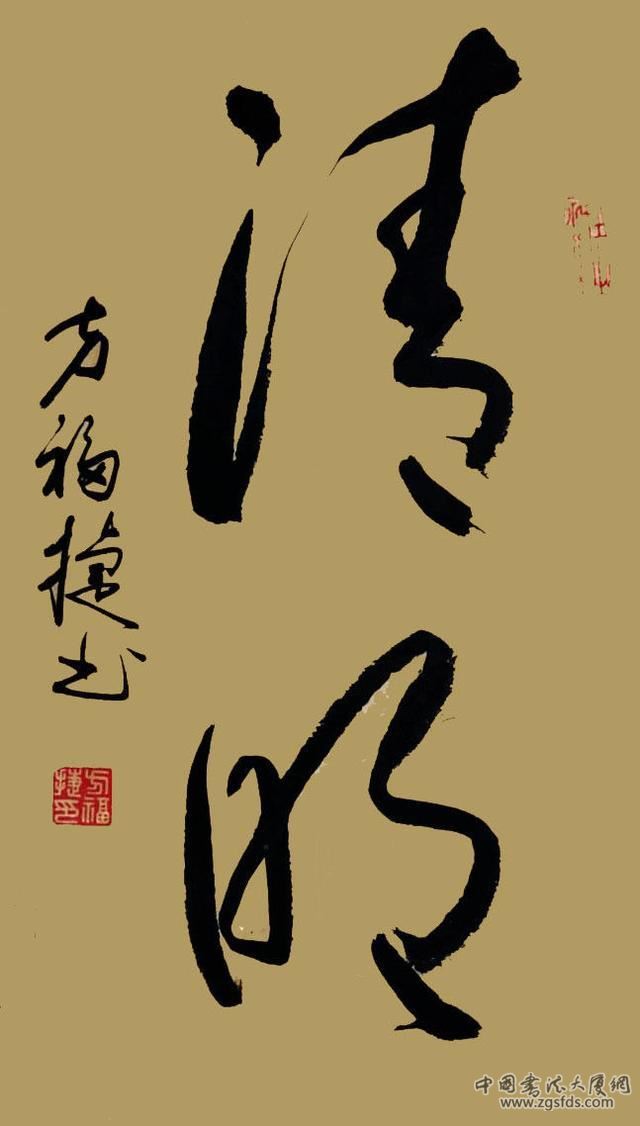 清明
方福捷书
方福捷印
中国书法大厦網
www.zgsfds.com